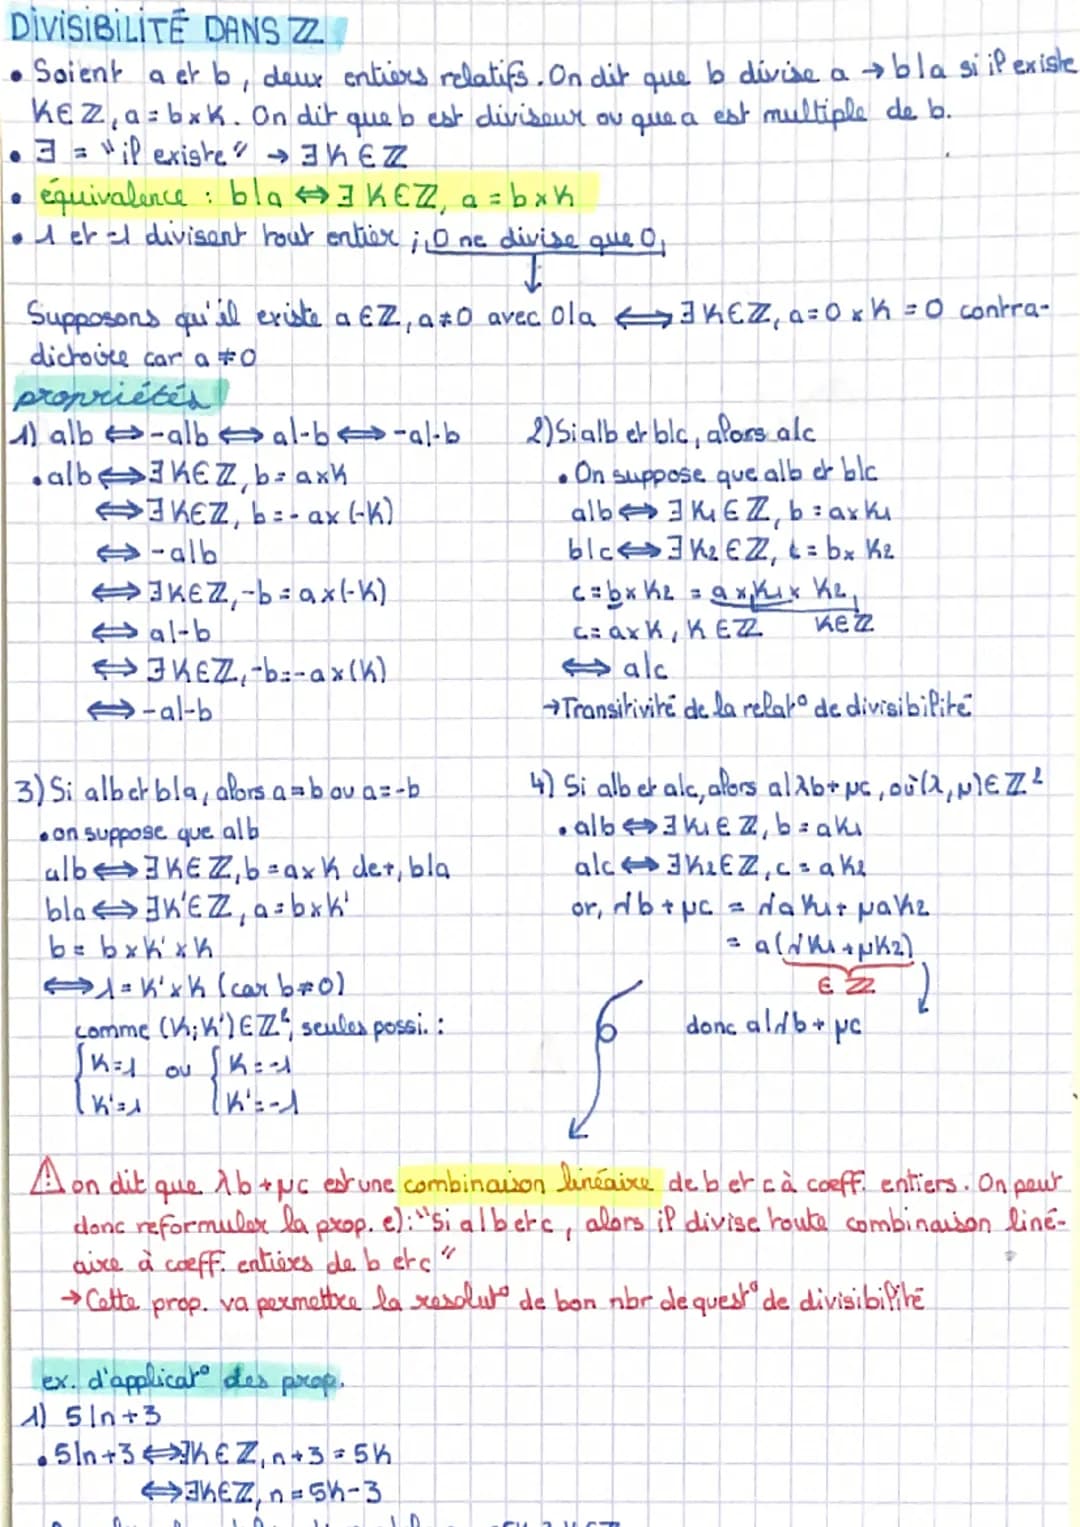 DIVISIBILITÉ DANS ℤ
• Soient a et b, deux entiers relatifs. On dit que b divise a → b|a si il existe
K∈ℤ, a = b×K. On dit que b est diviseur ou que a est multiple de b.
• ∃ = "il existe" → ∃K∈ℤ
• équivalence : b|a ⟺ ∃K∈ℤ, a = b×K
• 1 et -1 divisent tout entier ; 0 ne divise que 0,
↓
Supposons qu'il existe a∈ℤ, a≠0 avec 0|a ⟺ ∃K∈ℤ, a=0×K=0 contra-
dictoire car a≠0
propriétés
1) a|b ⟺ -a|b ⟺ a|-b ⟺ -a|-b
• a|b ⟺ ∃K∈ℤ, b=a×K
⟺ ∃K∈ℤ, b=-a×(-K)
⟺ -a|b
⟺ ∃K∈ℤ, -b=a×(-K)
⟺ a|-b
⟺ ∃K∈ℤ, -b=-a×(K)
⟺ -a|-b
2) Si a|b et b|c, alors a|c
• On suppose que a|b et b|c
a|b ⟺ ∃K₁∈ℤ, b=a×K₁
b|c ⟺ ∃K₂∈ℤ, c=b×K₂
c=b×K₂ = a×K₁×K₂,
c=a×K, K∈ℤ K∈ℤ
⟺ a|c
→ Transitivité de la relat° de divisibilité
3) Si a|b et b|a, alors a=b ou a=-b
• on suppose que a|b
a|b ⟺ ∃K∈ℤ, b=a×K de+, b|a
b|a ⟺ ∃K'∈ℤ, a=b×K'
b = b×K'×K
⟺ 1=K'×K (car b≠0)
comme (K;K')∈ℤ², seules possi. :
{K=1 ou {K=-1
{K'=1 {K'=-1
4) Si a|b et a|c, alors a|λb+μc, où (λ,μ)∈ℤ²
• a|b ⟺ ∃K₁∈ℤ, b=aK₁
a|c ⟺ ∃K₂∈ℤ, c=aK₂
or, λb+μc = λaK₁+μaK₂
= a(λK₁+μK₂)
∈ ℤ
donc a|λb+μc
⚠ on dit que λb+μc est une combinaison linéaire de b et c à coeff. entiers. On peut
donc reformuler la prop. e): "Si a|b et c, alors il divise toute combinaison liné-
aire à coeff. entières de b et c"
→ Cette prop. va permettre la resolut° de bon nbr de quest° de divisibilité
ex. d'applicat° des prop.
1) 5|n+3
• 5|n+3 ⟺ ∃K∈ℤ, n+3=5K
⟺ ∃K∈ℤ, n=5K-3